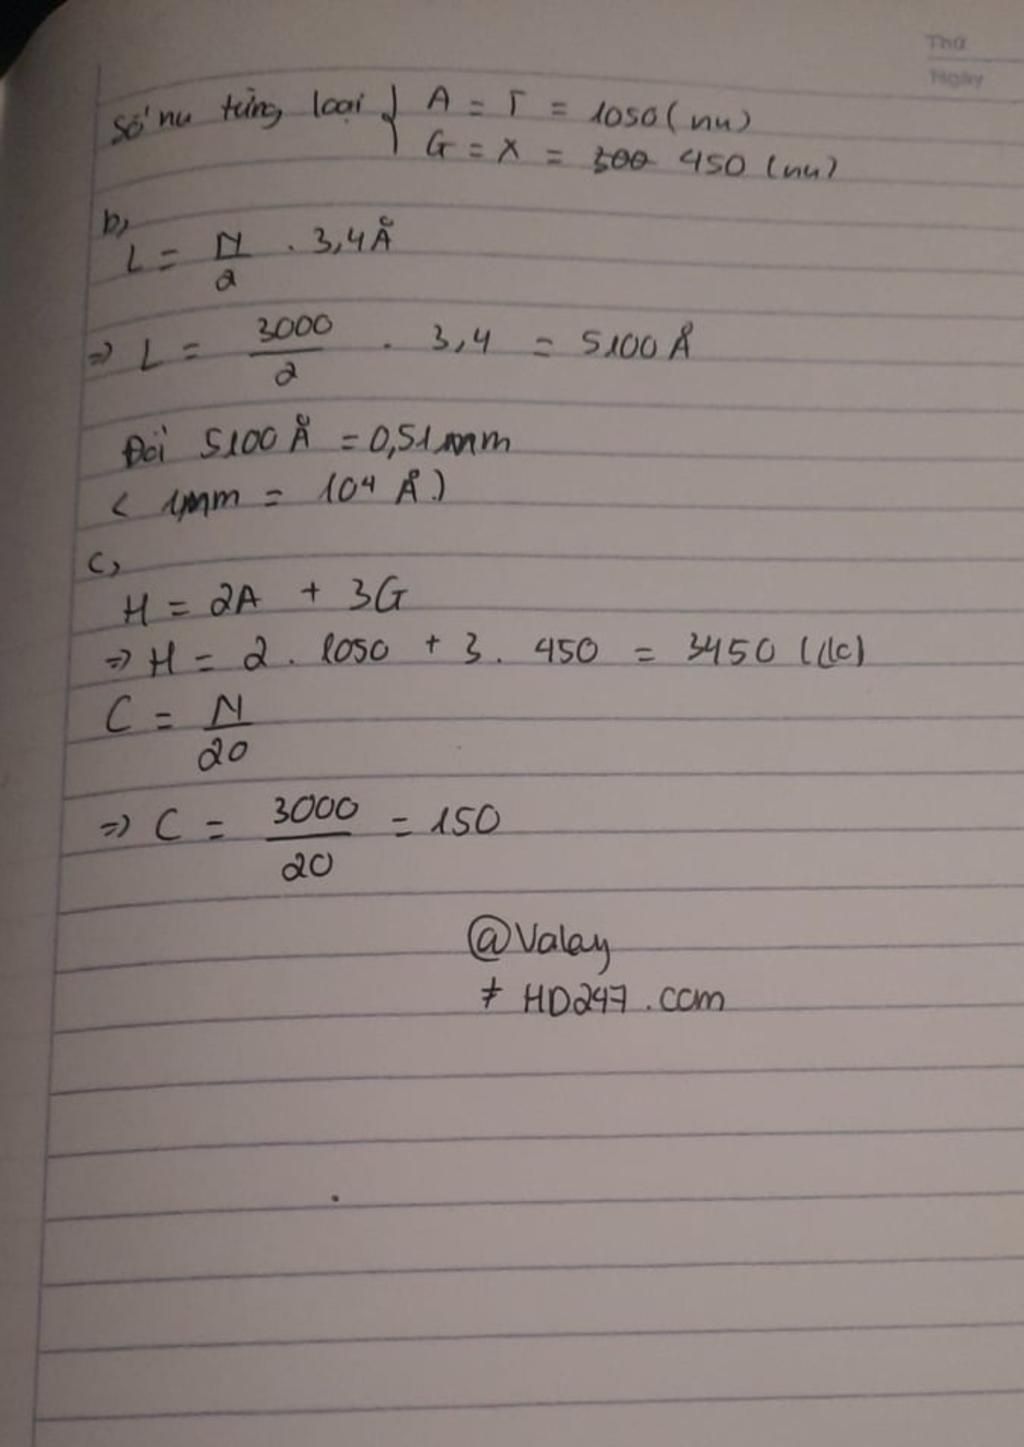 Thứ
Ngày
Số nu từng loại { A = T = 1050 (nu)
G = X = 300 450 (nu)
b,
L = N/2 . 3,4 Å
=> L = 3000/2 . 3,4 = 5100 Å
Đổi 5100 Å = 0,51 mm
( 1mm = 10⁴ Å )
c,
H = 2A + 3G
=> H = 2 . 1050 + 3 . 450 = 3450 (lk)
C = N/20
=> C = 3000/20 = 150
@Valey
≠ HD247.com